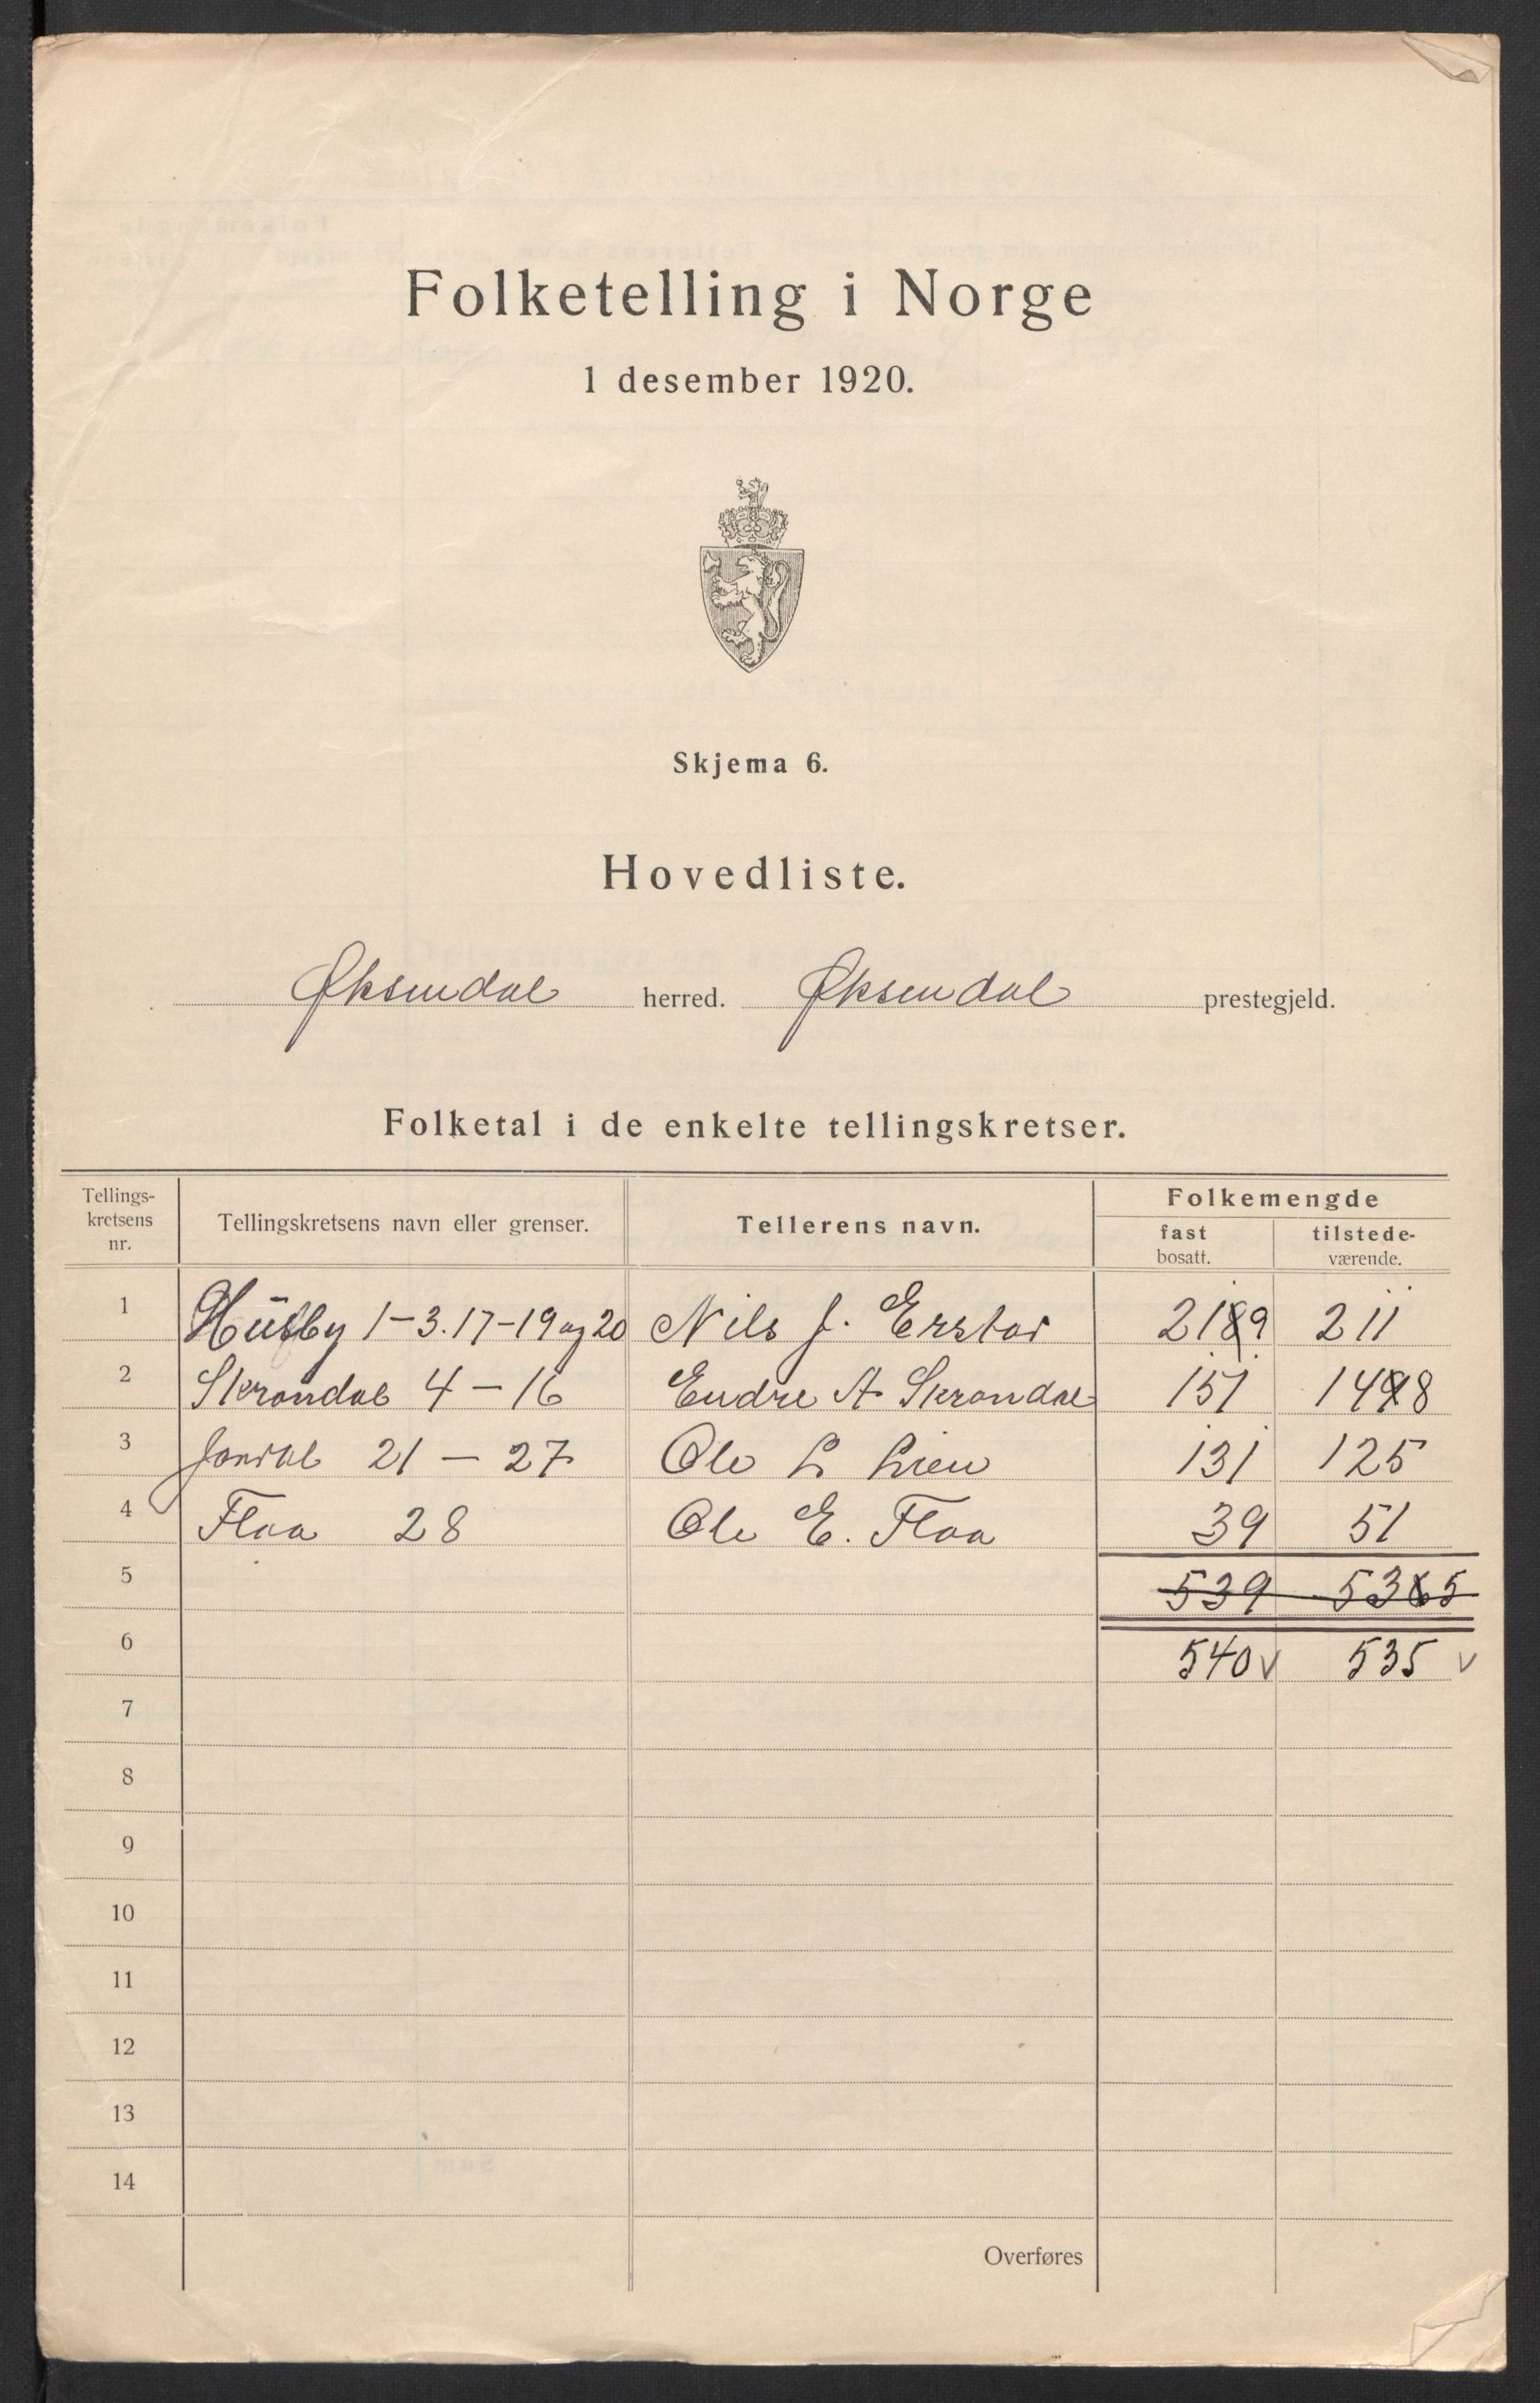 Folketelling i Norge
1 desember 1920.
Skjema 6.
Hovedliste.
Øksendal herred. Øksendal prestegjeld.
Folketal i de enkelte tellingskretser.
Tellings-
kretsens
nr.
Tellingskretsens navn eller grenser.
Tellerens navn.
Folkemengde
fast
bosatt.
tilstede-
værende.
1 Husby 1-3.17-19 og 20 Nils J. Erstad 2189 211
2 Skrondal 4-16 Endre A Skrondal 151 1498
3 Jordal 21-27 Ole L Lien 131 125
4 Flaa 28 Ole E. Flaa 39 51
5 539 5365
6 540 v 535 v
7
8
9
10
11
12
13
14
Overføres